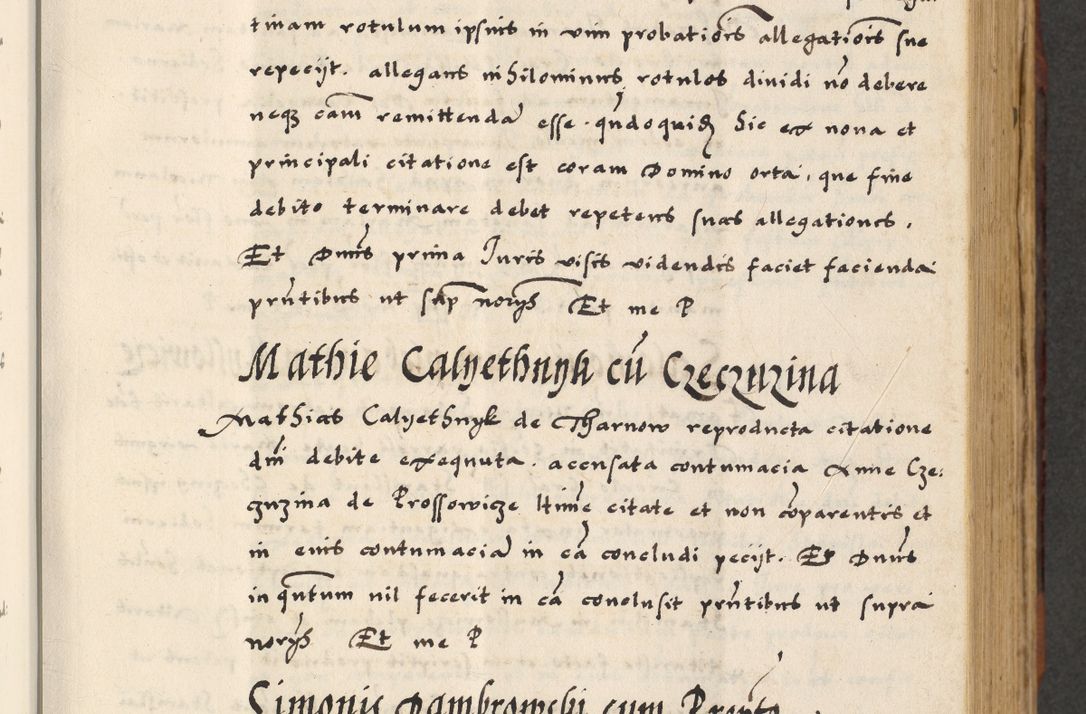 tinam rotulum ipsius in vim probationis allegationis sue
repeciit. allegans nihilominus rotulos dividi nō debere
neqз cām remittendā esse. qūdoquidз Sic ex nova et
principali citatione est coram Domino orta, que fine
debito terminare debet repetens suas allegationes.
Et Dnūs prima Juris visis videndis faciet facienda
prūtibus ut sup norīs Et me P
Mathie Calyethnyk cū Czeczuzina
Mathias Calyethnyk de Tharnow reproducta citatione
dnī debite exequuta. accusata contumacia Anne Cze:
czuzina de Prossowicze ltime citate et non cōparentis et
in eius contumaciā in cā concludi peciit. Et Dnus
in quntum nil fecerit in cā conclusit prūtibus ut supra
norīs Et me P
Simonis Dambrowski cum